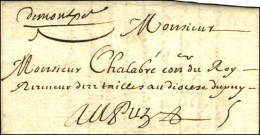 demontpel
Monsieur
Monsieur Chalabre con.er du Roy
Receveur des tailles au diocese dupuy
Au Puy
5